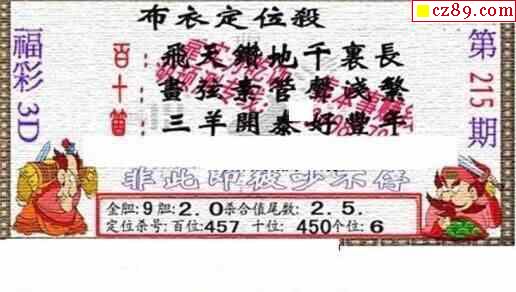 cz89.com
布衣定位殺
福彩3D
第215期
百:飛天鑽地千裏長
十:畫弦素管聲淺繁
笛:三羊開泰好豐年
金胆:9胆:2.0杀合值尾数:2.5.
定位杀号:百位:457 十位:450个位:6